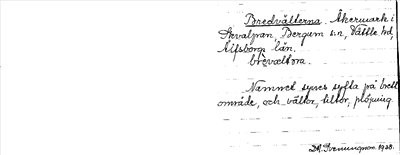 Bredvälterna. Åkermark i
Skvalpan, Bergum s:n, Vättle hd,
Älfsborgs län.
brèvæltɷra.
Namnet synes syfta på brett
område, och vältor, tiltor, plöjning.
1928.